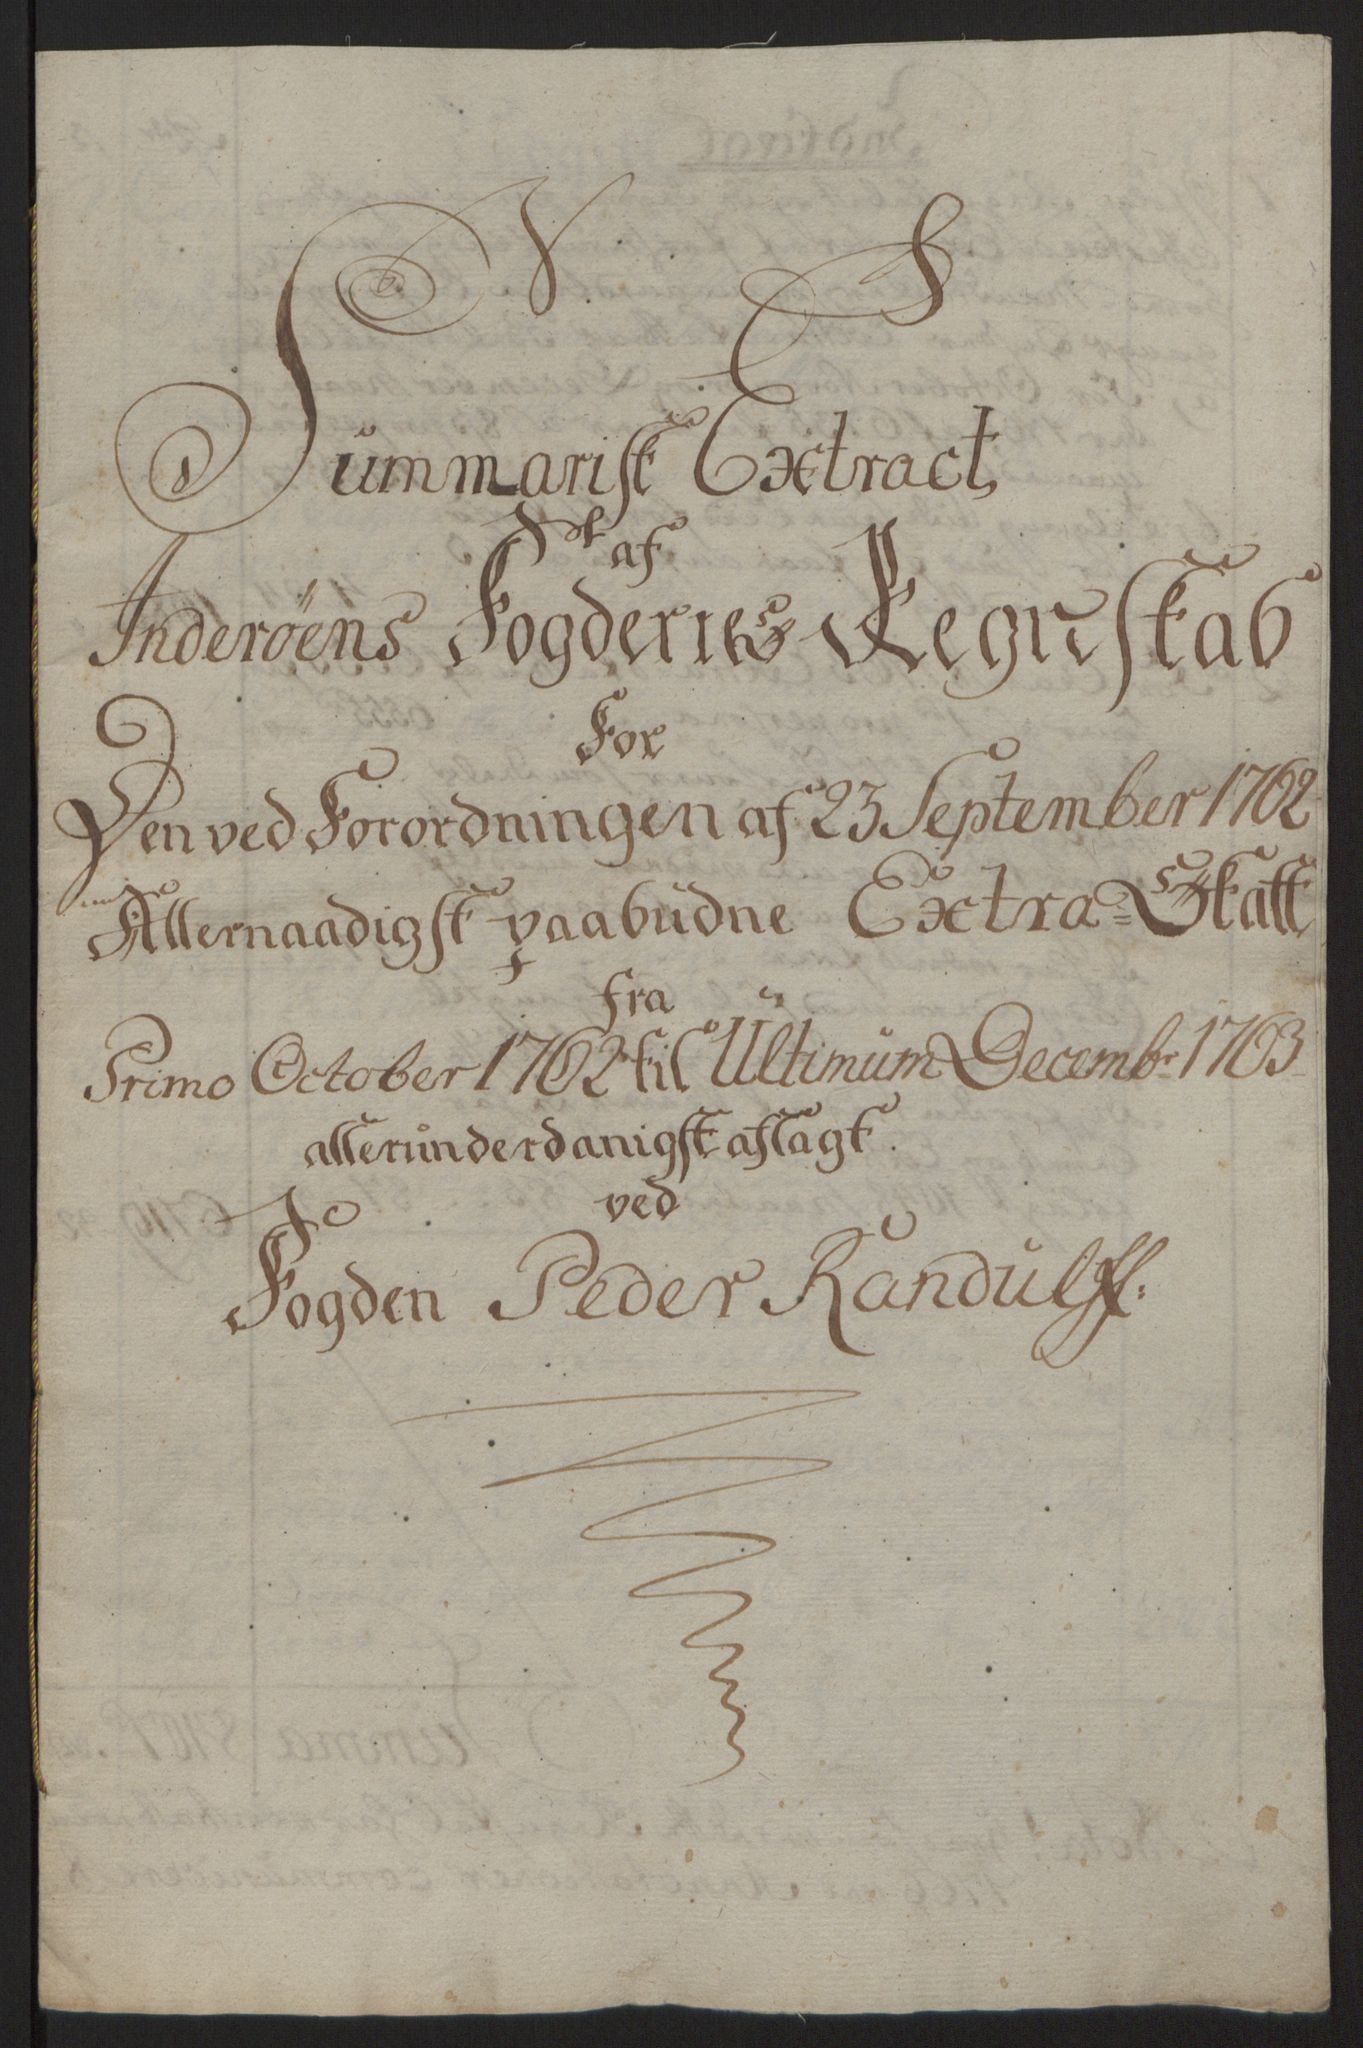 Summarisk Extract
af
Inderøens Fogderies Regnskab
For
Den ved Forordningen af 23 September 1762
Allernaadigst paabudne Extra-Skatt
fra
Primo October 1762 til Ultimum Decembr 1763
allerunderdanigst aflagt
ved
Fogden Peder Randulff.